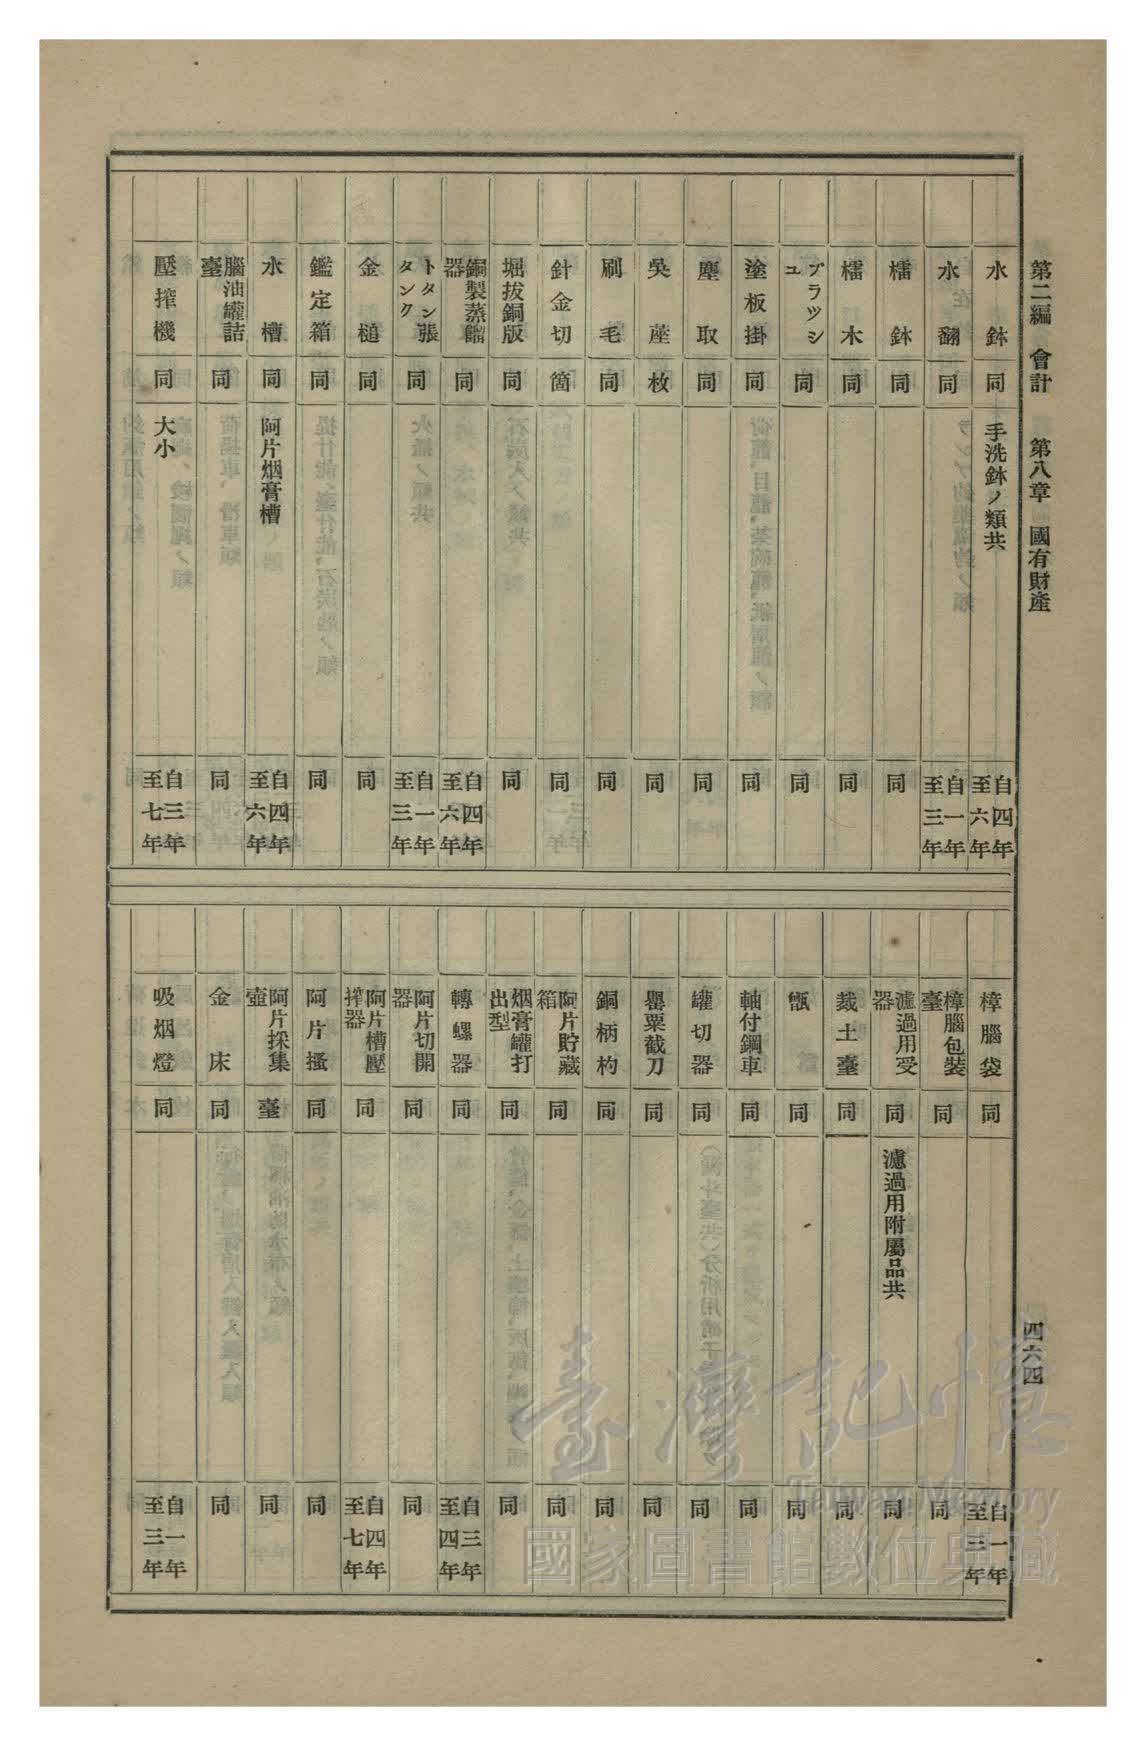 第二編　會計　第八章　國有財產
四六四
水鉢　同　手洗鉢ノ類共　自四年至六年
水翻　同　自一年至三年
檽鉢　同　同
檽木　同　同
ブラツシユ　同　同
塗板掛　同　同
塵取　同　同
吳座　枚　同
刷毛　同　同
針金切　箇　同
堀拔銅版　同　同
銅製蒸餾器　同　自四年至六年
トタン張タンク　同　自一年至三年
金槌　同　同
鑑定箱　同　同
水槽　同　阿片烟膏槽　自四年至六年
腦油罐詰臺　同　同
壓搾機　同　大小　自三年至七年
樟腦袋　同　自一年至三年
樟腦包裝臺　同　同
濾過用受器　同　濾過用附屬品共　同
裁土臺　同　同
甑　同　同
軸付鋼車　同　同
罐切器　同　同
罌粟截刀　同　同
銅柄杓　同　同
阿片貯藏箱　同　同
烟膏罐打出型　同　同
轉螺器　同　自三年至四年
阿片切開器　同　同
阿片槽壓搾器　同　自四年至七年
阿片搔　同　同
阿片採集壺　臺　同
金床　同　同
吸烟燈　同　自一年至三年
臺灣記憶
Taiwan Memory
國家圖書館數位典藏